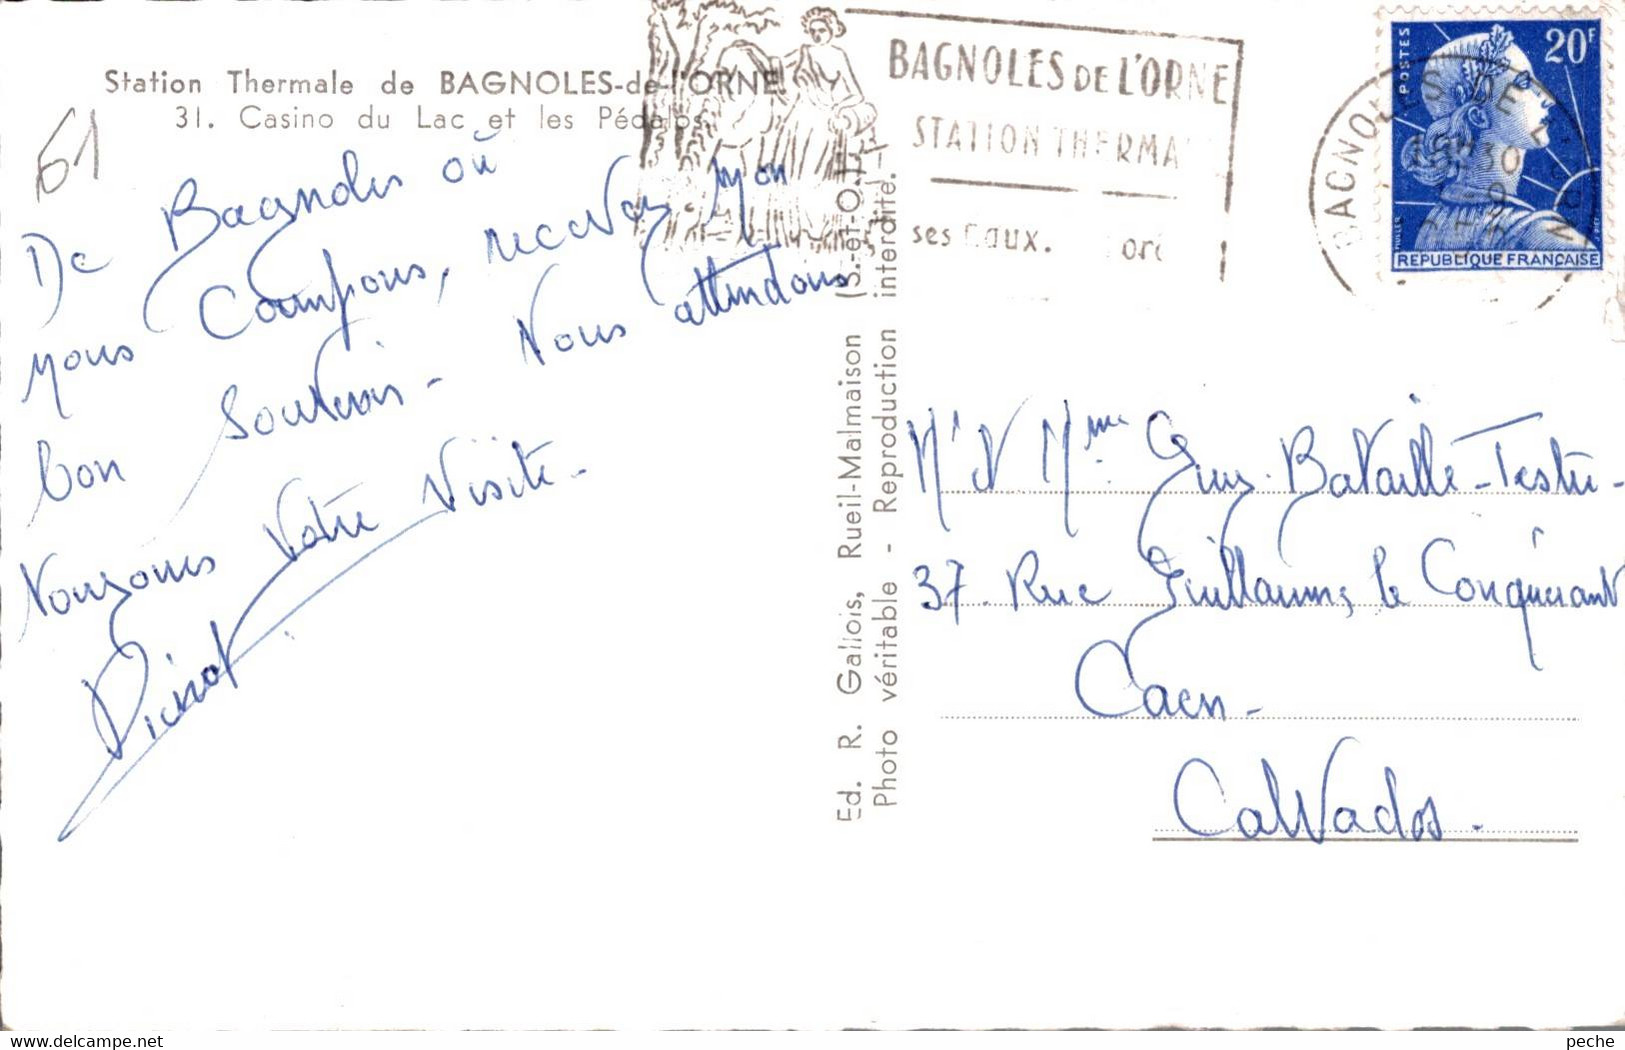 Station Thermale de BAGNOLES-de-l'ORNE
31. Casino du Lac et les Pédalos
61
De Bagnoles où
nous Campons, recevez mon
bon Souvenir - Nous attendons
toujours Votre Visite -
BAGNOLES DE L'ORNE
STATION THERMA
ses Eaux.
BAGNOLES DE L'
POSTES
20F
REPUBLIQUE FRANÇAISE
Ed. R. Gallois, Rueil-Malmaison (S.-et-O.)
Photo véritable - Reproduction interdite.
Mr & Mme Guy Bataille-Testu -
37 Rue Guillaume le Conquérant
Caen -
Calvados.
peche